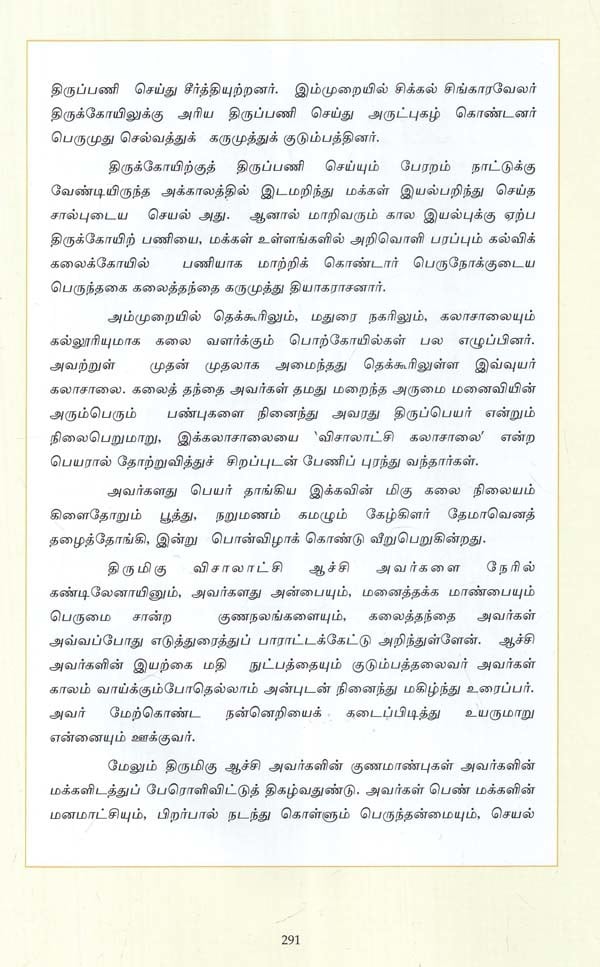 திருப்பணி செய்து சீர்த்தியுற்றனர். இம்முறையில் சிக்கல் சிங்காரவேலர்
திருக்கோயிலுக்கு அரிய திருப்பணி செய்து அருட்புகழ் கொண்டனர்
பெருமுது செல்வத்துக் கருமுத்துக் குடும்பத்தினர்.
திருக்கோயிற்குத் திருப்பணி செய்யும் பேரறம் நாட்டுக்கு
வேண்டியிருந்த அக்காலத்தில் இடமறிந்து மக்கள் இயல்பறிந்து செய்த
சால்புடைய செயல் அது. ஆனால் மாறிவரும் கால இயல்புக்கு ஏற்ப
திருக்கோயிற் பணியை, மக்கள் உள்ளங்களில் அறிவொளி பரப்பும் கல்விக்
கலைக்கோயில் பணியாக மாற்றிக் கொண்டார் பெருநோக்குடைய
பெருந்தகை கலைத்தந்தை கருமுத்து தியாகராசனார்.
அம்முறையில் தெக்கூரிலும், மதுரை நகரிலும், கலாசாலையும்
கல்லூரியுமாக கலை வளர்க்கும் பொற்கோயில்கள் பல எழுப்பினர்.
அவற்றுள் முதன் முதலாக அமைந்தது தெக்கூரிலுள்ள இவ்வுயர்
கலாசாலை. கலைத் தந்தை அவர்கள் தமது மறைந்த அருமை மனைவியின்
அரும்பெரும் பண்புகளை நினைந்து அவரது திருப்பெயர் என்றும்
நிலைபெறுமாறு, இக்கலாசாலையை 'விசாலாட்சி கலாசாலை' என்ற
பெயரால் தோற்றுவித்துச் சிறப்புடன் பேணிப் புரந்து வந்தார்கள்.
அவர்களது பெயர் தாங்கிய இக்கவின் மிகு கலை நிலையம்
கிளைதோறும் பூத்து, நறுமணம் கமழும் கேழ்கிளர் தேமாவெனத்
தழைத்தோங்கி, இன்று பொன்விழாக் கொண்டு வீறுபெறுகின்றது.
திருமிகு விசாலாட்சி ஆச்சி அவர்களை நேரில்
கண்டிலேனாயினும், அவர்களது அன்பையும், மனைத்தக்க மாண்பையும்
பெருமை சான்ற குணநலங்களையும், கலைத்தந்தை அவர்கள்
அவ்வப்போது எடுத்துரைத்துப் பாராட்டக்கேட்டு அறிந்துள்ளேன். ஆச்சி
அவர்களின் இயற்கை மதி நுட்பத்தையும் குடும்பத்தலைவர் அவர்கள்
காலம் வாய்க்கும்போதெல்லாம் அன்புடன் நினைந்து மகிழ்ந்து உரைப்பர்.
அவர் மேற்கொண்ட நன்னெறியைக் கடைப்பிடித்து உயருமாறு
என்னையும் ஊக்குவர்.
மேலும் திருமிகு ஆச்சி அவர்களின் குணமாண்புகள் அவர்களின்
மக்களிடத்துப் பேரொளிவிட்டுத் திகழ்வதுண்டு. அவர்கள் பெண் மக்களின்
மனமாட்சியும், பிறர்பால் நடந்து கொள்ளும் பெருந்தன்மையும், செயல்
291